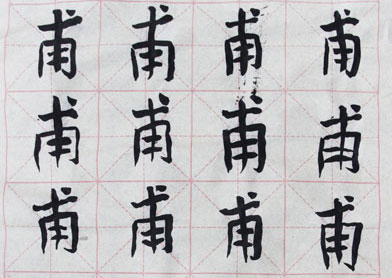 甫甫甫甫
甫甫甫甫
甫甫甫甫